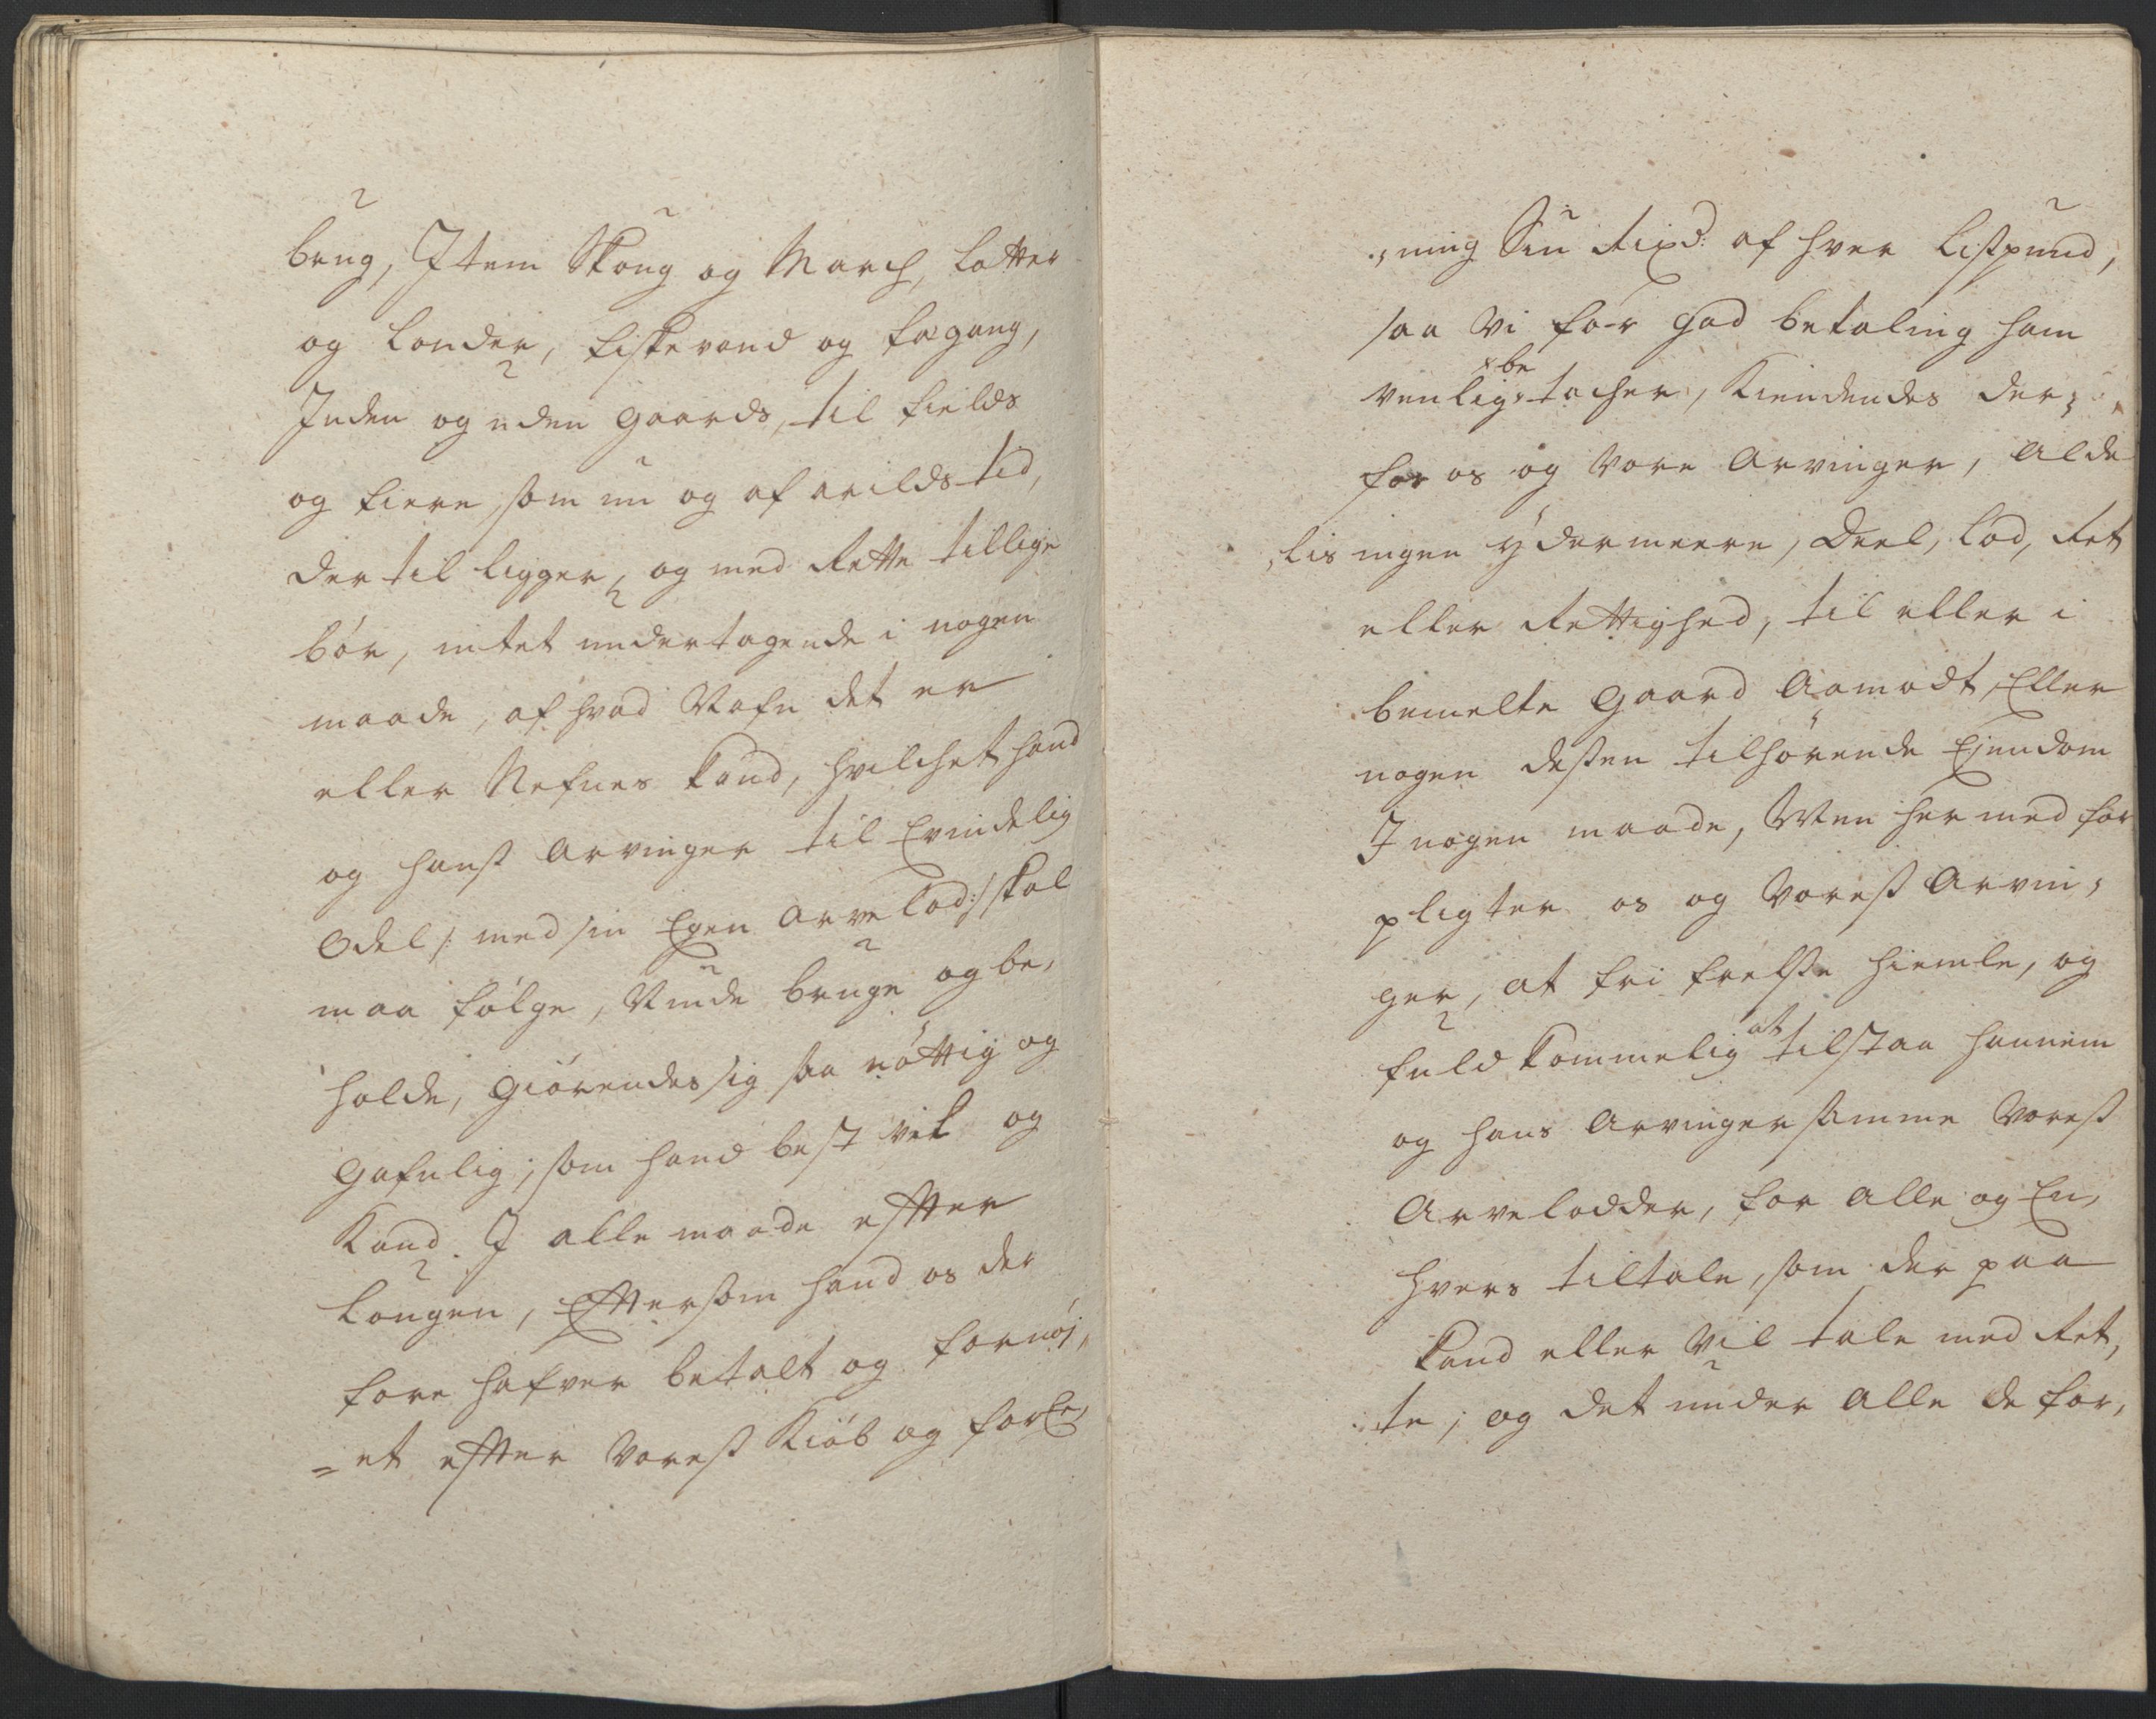 brug, Item Skoug og March, Lotter
og Londer, fiskevand og fægang,
Inden og uden gaards, til fields
og fiere, som nu og af arilds tid,
der til ligger, og med Rette tillige
bör, intet undertagende i nogen
maade, af hvad Nafn det er
eller Nefnes kand, hvilchet hand
og hanß Arvinger til Evindelig
Odel /: med sin Egen Arve Lod :/ skal
maa fölge, Niude bruge og be,
holde, giörendes sig saa nöttig og
gafnlig; som hand best vil og
Kand. I alle maade effter
Lougen, Effter som hand os der
fore hafver betalt og fornöj,
=et effter Voreß Kiöb og forEe,
,ning Siu Rixd: af hver Lißpund,
saa Vi for god betaling ham
venlig be tacher, Kiendendes der,
for os og Vore Arvinger, Alde
,lis ingen ydermeere, Deel, Lod, Ret
eller Rettighed, til eller i
bemelte gaard Aamodt, Eller
nogen deßen tilhörende Ejendom
I nogen maade, Men her med for
pligter os og Voreß Arvin,
ger, at fri frelße hiemle, og
fuldkommelig at tilstaa hannem
og hans Arvinger samme Voreß
Arvelodder, for Alle og En,
hvers tiltale, som der paa
kand eller Vil tale med Ret,
te; og det under Alle de for,